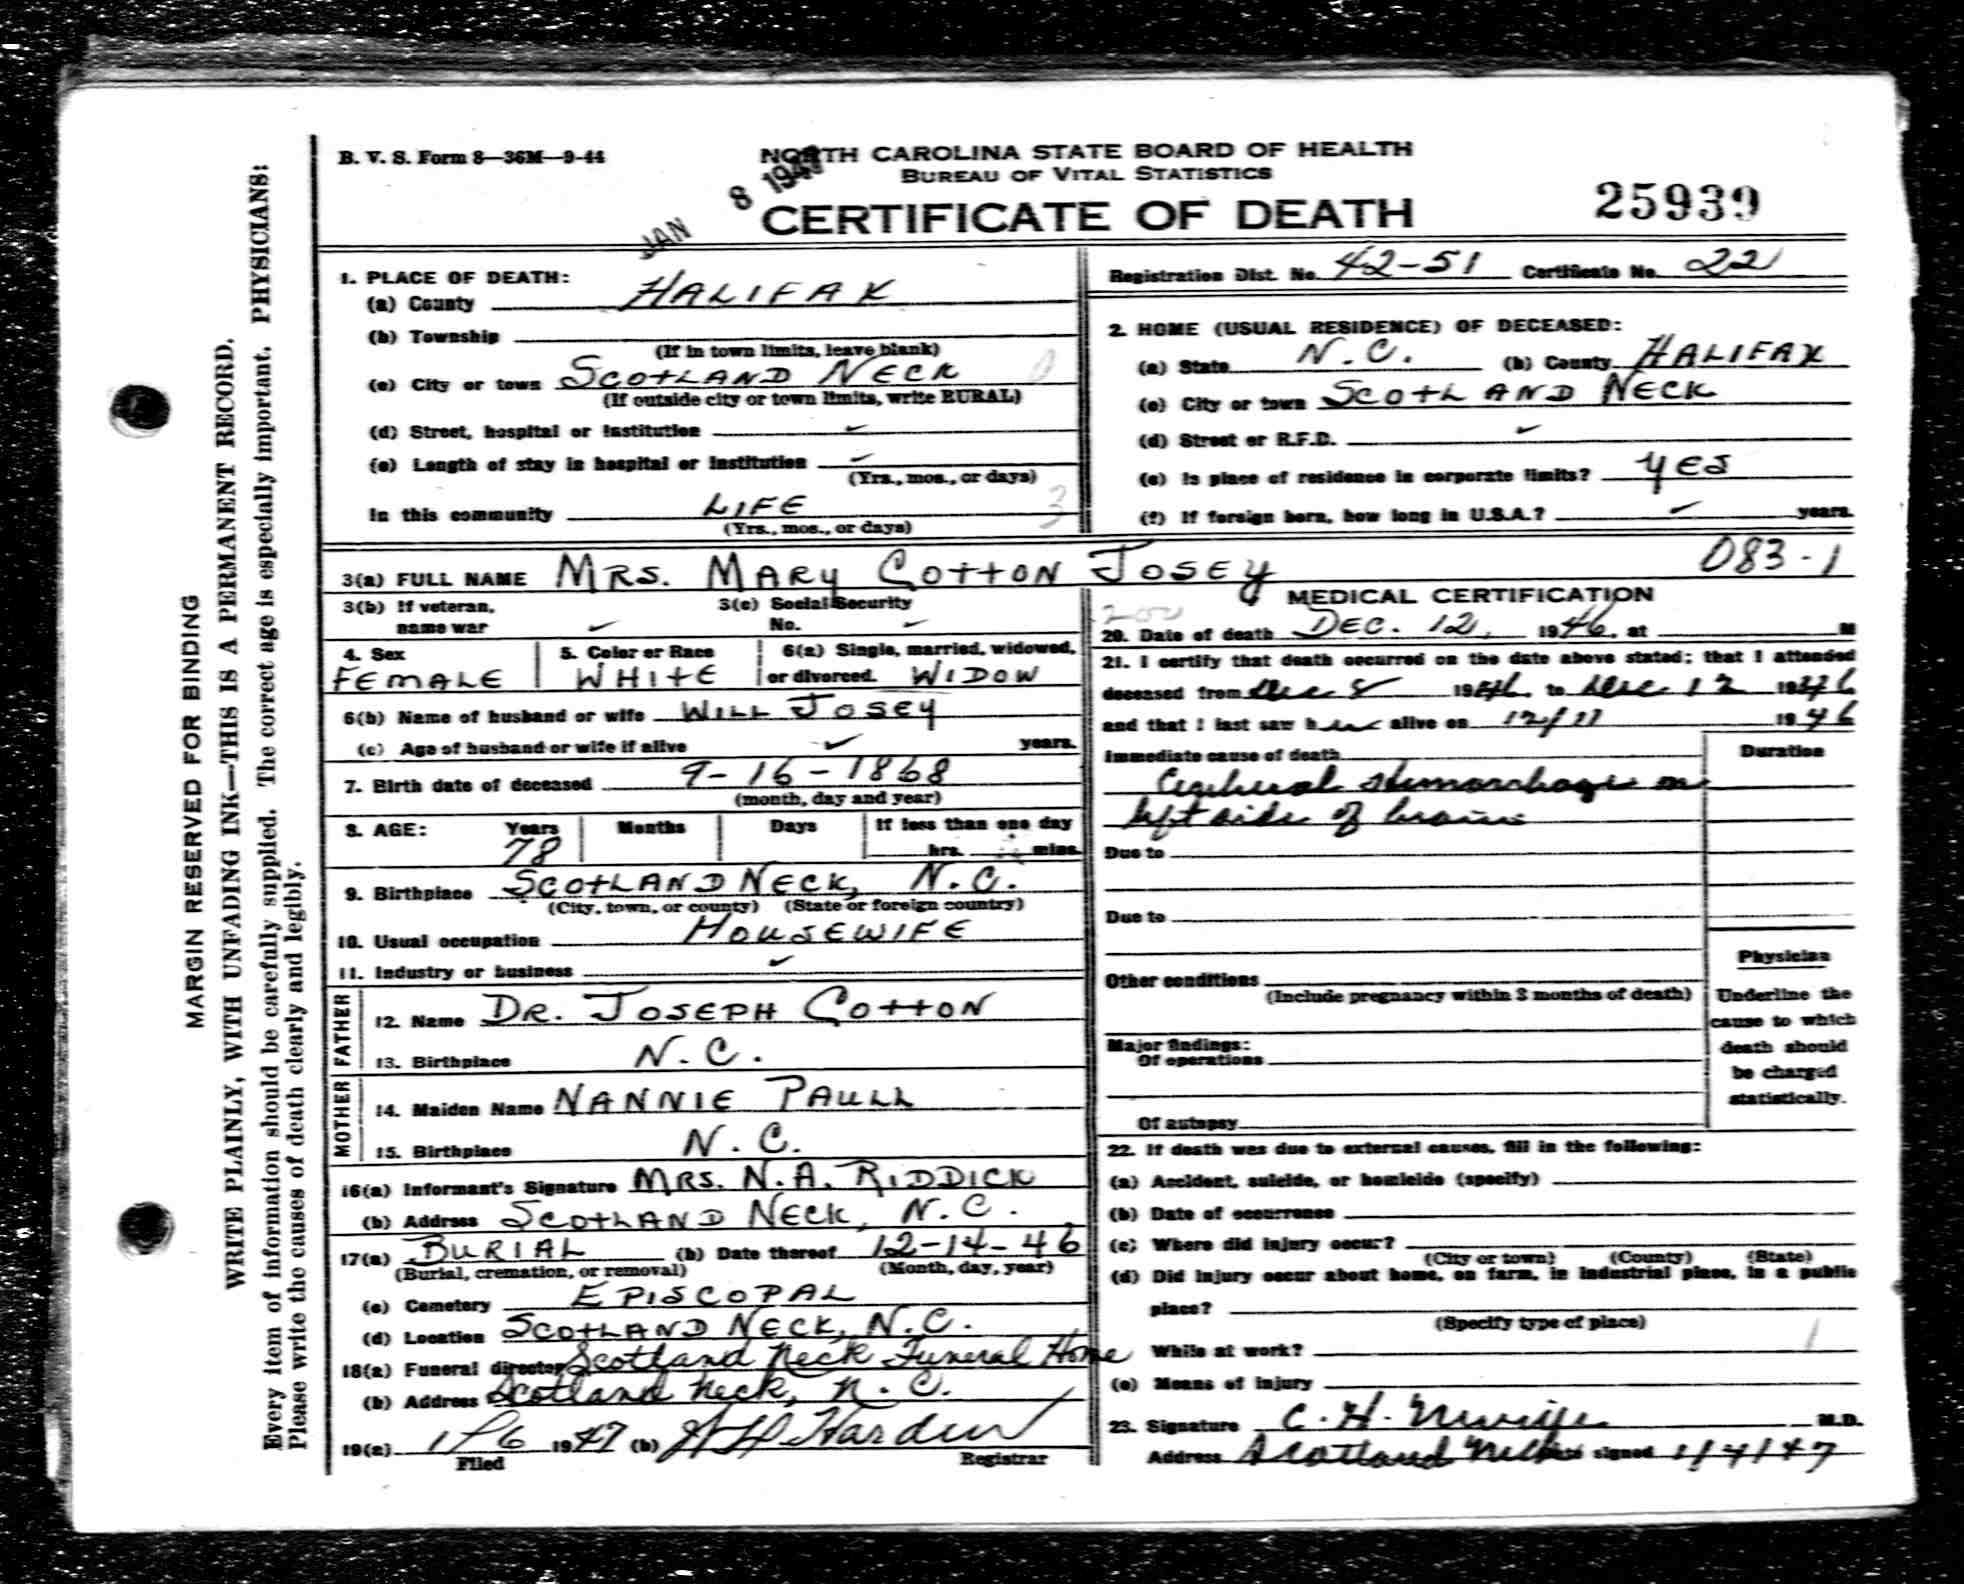 B. V. S. Form 8—36M—9-44
NORTH CAROLINA STATE BOARD OF HEALTH
BUREAU OF VITAL STATISTICS
JAN 8 1947
CERTIFICATE OF DEATH
25939
MARGIN RESERVED FOR BINDING
WRITE PLAINLY, WITH UNFADING INK—THIS IS A PERMANENT RECORD.
Every item of information should be carefully supplied. The correct age is especially important. PHYSICIANS:
Please write the causes of death clearly and legibly.
1. PLACE OF DEATH:
(a) County HALIFAX
(b) Township
(If in town limits, leave blank)
(c) City or town SCOTLAND NECK
(If outside city or town limits, write RURAL)
(d) Street, hospital or institution ✓
(e) Length of stay in hospital or institution ✓
(Yrs., mos., or days)
In this community LIFE
(Yrs., mos., or days)
3
Registration Dist. No. 42-51 Certificate No. 22
2. HOME (USUAL RESIDENCE) OF DECEASED:
(a) State N.C. (b) County HALIFAX
(c) City or town SCOTLAND NECK
(d) Street or R.F.D. ✓
(e) Is place of residence in corporate limits? YES
(f) If foreign born, how long in U.S.A.? ✓ years.
3(a) FULL NAME MRS. MARY COTTON JOSEY
083-1
3(b) If veteran, name war ✓
3(c) Social Security No. ✓
4. Sex FEMALE
5. Color or Race WHITE
6(a) Single, married, widowed, or divorced. WIDOW
6(b) Name of husband or wife WILL JOSEY
(c) Age of husband or wife if alive ✓ years.
7. Birth date of deceased 9-16-1868
(month, day and year)
8. AGE: Years 78 Months Days If less than one day
hrs. mins.
9. Birthplace SCOTLAND NECK, N.C.
(City, town, or county) (State or foreign country)
10. Usual occupation HOUSEWIFE
11. Industry or business ✓
FATHER
12. Name DR. JOSEPH COTTON
13. Birthplace N.C.
MOTHER
14. Maiden Name NANNIE PAULL
15. Birthplace N.C.
16(a) Informant's Signature MRS. N.A. RIDDICK
(b) Address SCOTLAND NECK, N.C.
17(a) BURIAL (b) Date thereof 12-14-46
(Burial, cremation, or removal) (Month, day, year)
(c) Cemetery EPISCOPAL
(d) Location SCOTLAND NECK, N.C.
18(a) Funeral director Scotland Neck Funeral Home
(b) Address Scotland Neck, N.C.
19(a) 1/6 1947 (b) Harden
Filed Registrar
MEDICAL CERTIFICATION
20. Date of death DEC. 12, 1946, at M
21. I certify that death occurred on the date above stated; that I attended
deceased from Dec 8 1946 to Dec 12 1946
and that I last saw her alive on 12/11 1946
Immediate cause of death Duration
Cerebral Hemorrhage on
left side of brain
Due to
Due to
Other conditions
(Include pregnancy within 3 months of death)
Major findings:
Of operations
Of autopsy
Physician
Underline the
cause to which
death should
be charged
statistically.
22. If death was due to external causes, fill in the following:
(a) Accident, suicide, or homicide (specify)
(b) Date of occurrence
(c) Where did injury occur?
(City or town) (County) (State)
(d) Did injury occur about home, on farm, in industrial place, in a public
place?
(Specify type of place)
While at work?
(e) Means of injury
23. Signature C. H. M.D.
Address Scotland Neck Date signed 1/4/47